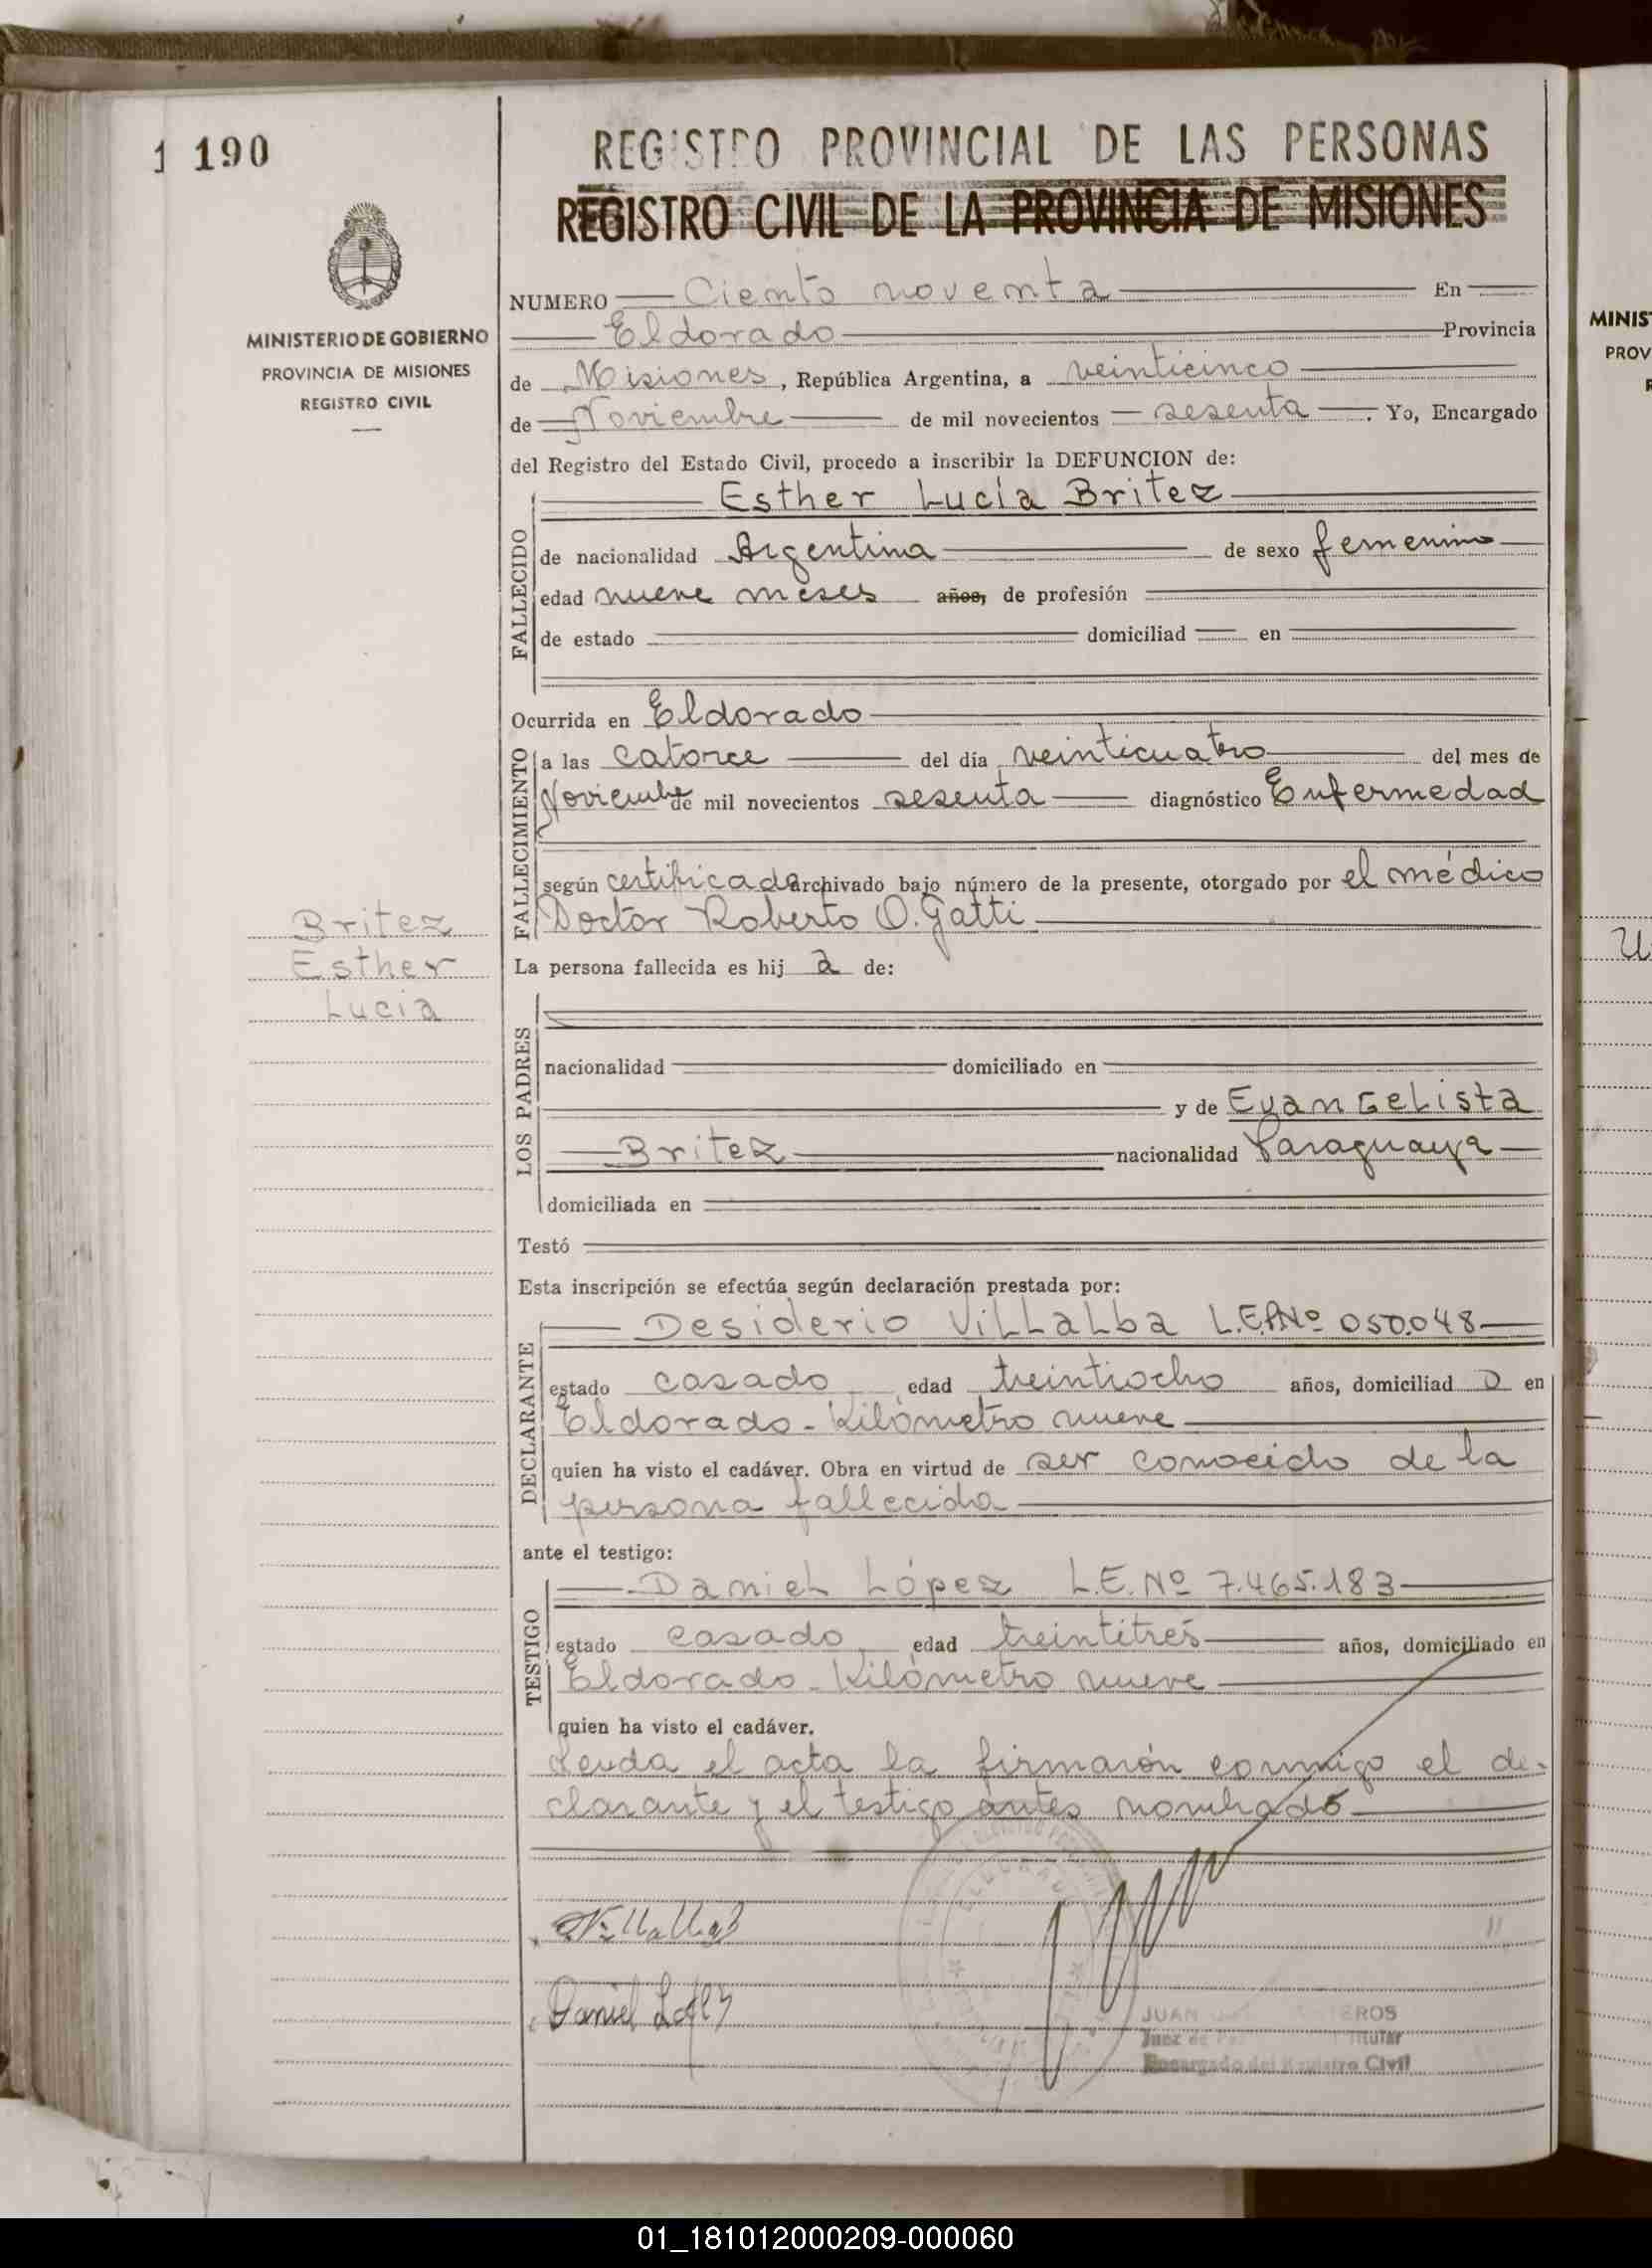 1 190
REGISTRO PROVINCIAL DE LAS PERSONAS
REGISTRO CIVIL DE LA PROVINCIA DE MISIONES
MINISTERIO DE GOBIERNO
PROVINCIA DE MISIONES
REGISTRO CIVIL
NUMERO Ciento noventa En
Eldorado Provincia
de Misiones, República Argentina, a veinticinco
de Noviembre de mil novecientos sesenta. Yo, Encargado
del Registro del Estado Civil, procedo a inscribir la DEFUNCION de:
FALLECIDO
Esther Lucía Britez
de nacionalidad Argentina de sexo femenino
edad nueve meses años, de profesión
de estado domiciliad en
Ocurrida en Eldorado
FALLECIMIENTO
a las catorce del día veinticuatro del mes de
Noviembre de mil novecientos sesenta diagnóstico Enfermedad
según certificado archivado bajo número de la presente, otorgado por el médico
Doctor Roberto O. Gatti
Britez
Esther
Lucia
La persona fallecida es hij a de:
LOS PADRES
nacionalidad domiciliado en
y de Evangelista
Britez nacionalidad Paraguaya
domiciliada en
Testó
Esta inscripción se efectúa según declaración prestada por:
DECLARANTE
Desiderio Villalba Nº 050.048
estado casado edad treintiocho años, domiciliad o en
Eldorado - Kilómetro nueve
quien ha visto el cadáver. Obra en virtud de ser conocido de la
persona fallecida
ante el testigo:
TESTIGO
Daniel López L.E. Nº 7.465.183
estado casado edad treintitrés años, domiciliado en
Eldorado - Kilómetro nueve
quien ha visto el cadáver.
Leuda el acta la firmarón conmigo el de-
clarante y el testigo antes nombrado
Villalba
Daniel
JUAN
Juez de Titular
Encargado del Registro Civil
MINIS
PROV
01_181012000209-000060